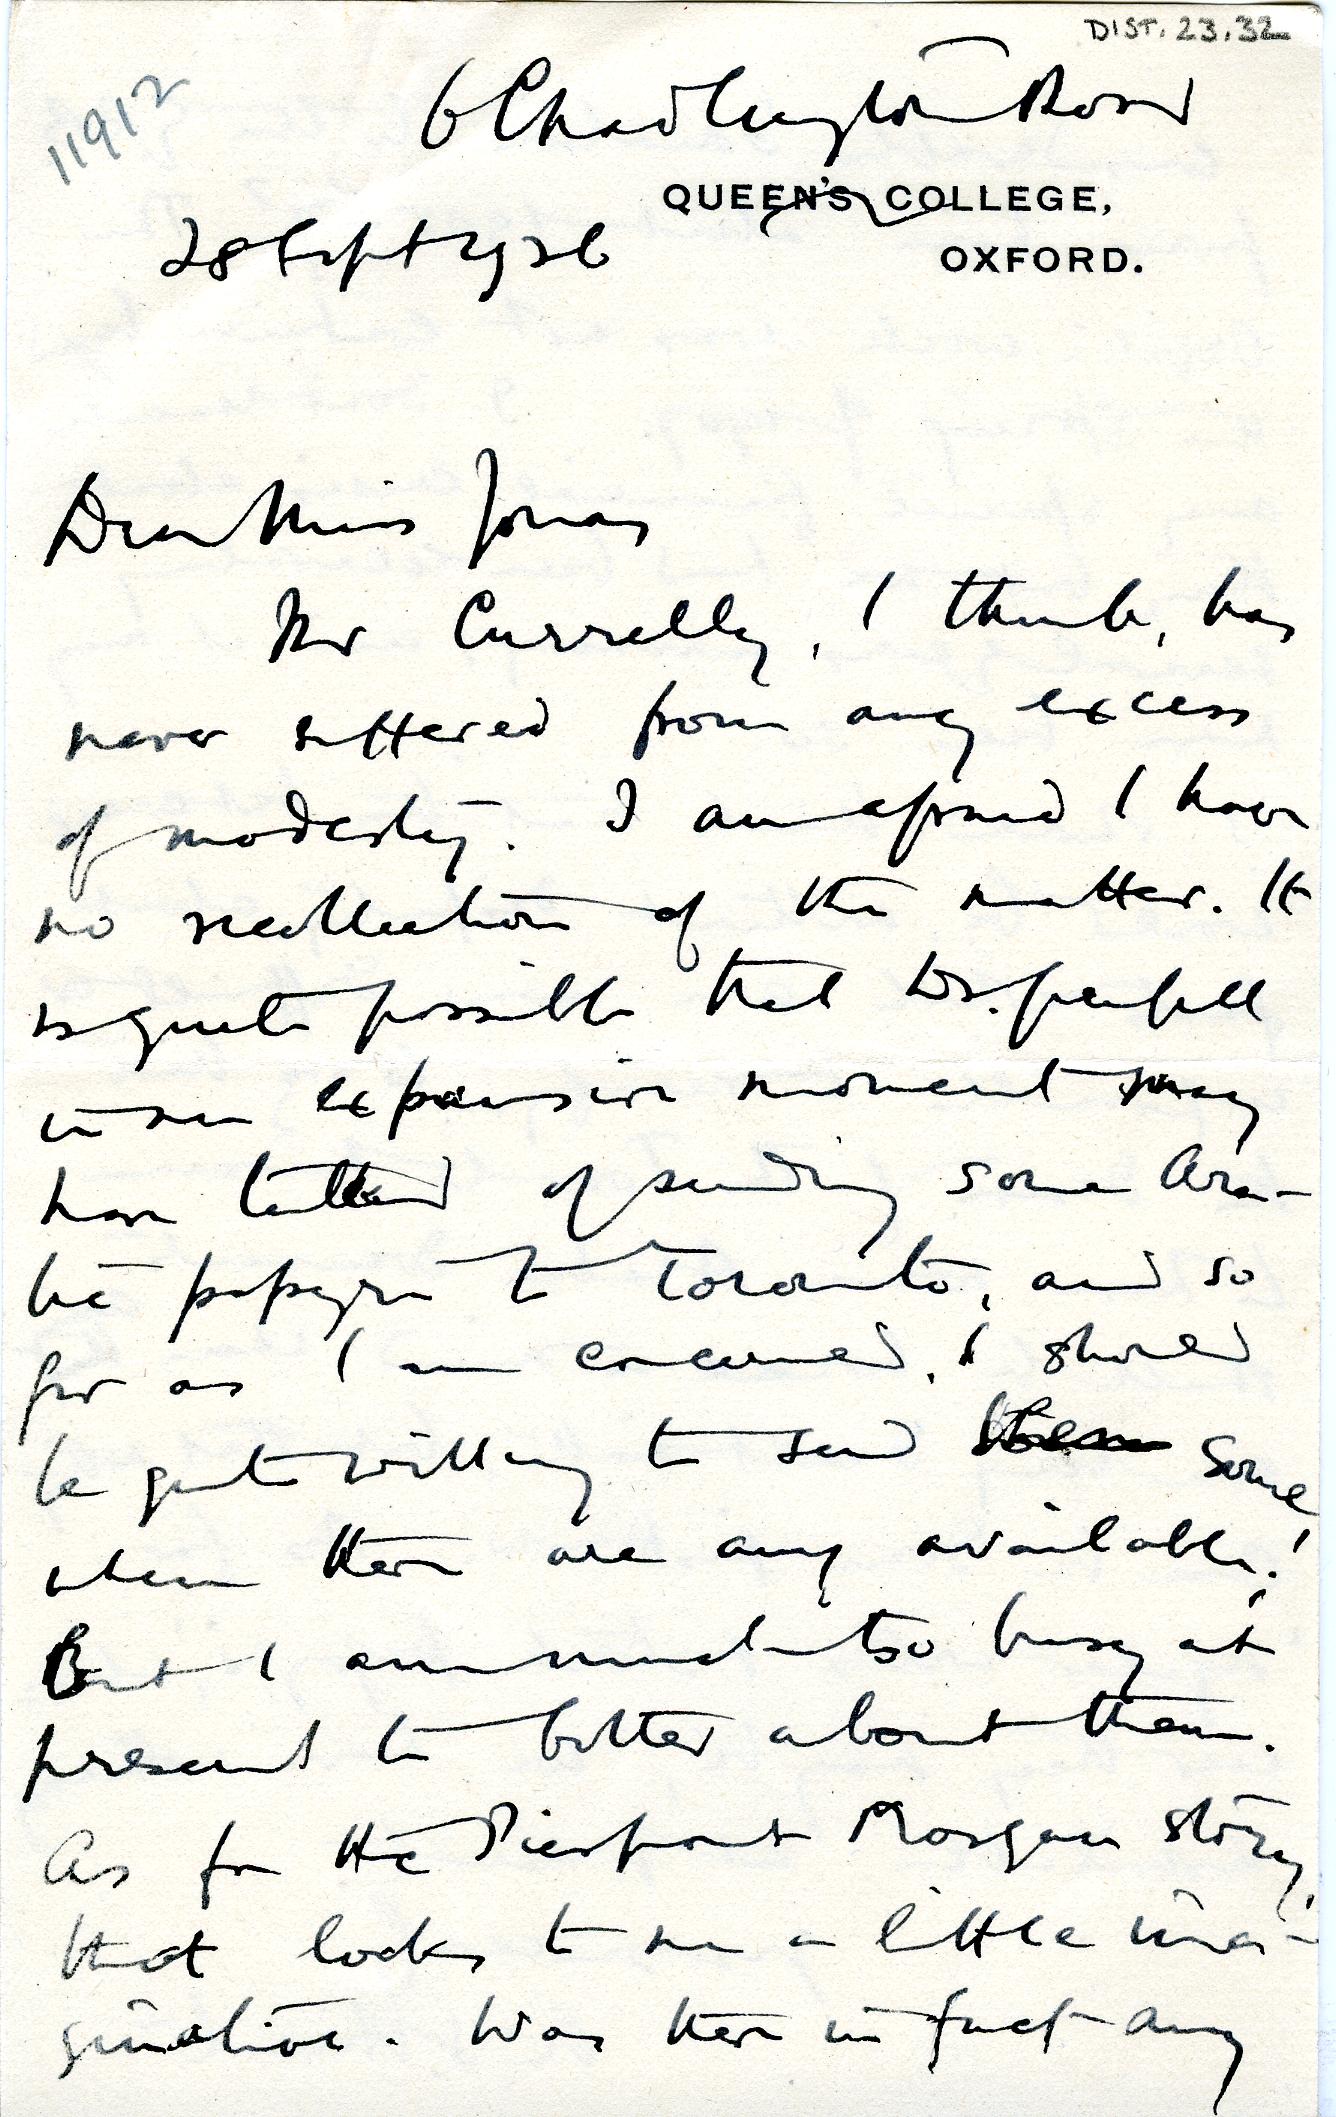 DIST. 23.32
11912
6 Chadlington Road
QUEEN'S COLLEGE,
OXFORD.
28 Sept 1926
Dear Miss Jonas
Mr Currelly, I think, has
never suffered from any excess
of modesty. I am afraid I have
no recollection of the matter. It
is quite possible that Dr. Grenfell
in an expansive moment may
have talked of sending some Ara-
bic papyri to Toronto, and so
far as I am concerned, I should
be quite willing to send them some
when there are any available!
But I am much too busy at
present to bother about them.
As for the Pierpont Morgan story,
that looks to me a little ima-
ginative. Was there in fact any